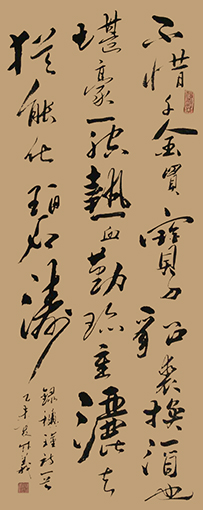 不惜千金買寶刀貂裘換酒也
堪豪一腔熱血勤珍重灑去
猶能化碧濤
錄秋瑾詩一首